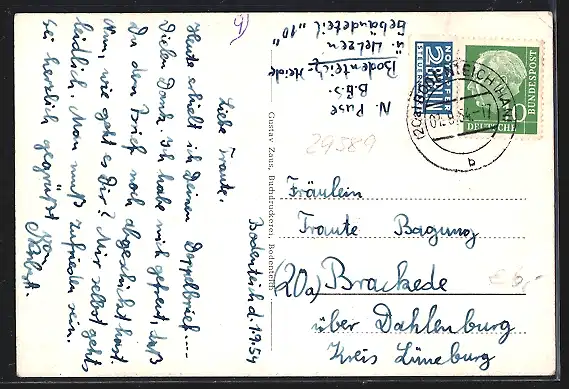 Bodenteich d. 1.9.54
Liebe Traute.
Heute erhielt ich Deinen Doppelbrief....
Vielen Dank. Ich habe mich gefreut, daß
Du dem Brief noch abgeschickt hast.
Nun, wie geht es Dir? Mir selbst geht's
leidlich. Man muß zufrieden sein.
Sei herzlich gegrüßt von
N.
B.G.S.
Bodenteich-Heide
ü. Uelzen
Gebäudeteil "10"
Gustav Zaus, Buchdruckerei, Bodenteich
29589
NOTOPFER
2 BERLIN
STEUERMARKE
DEUTSCHE
BUNDESPOST
10
b
Fräulein
Traute Bagung
(20a) Brackede
über Dahlenburg
Kreis Lüneburg
€ 6,-